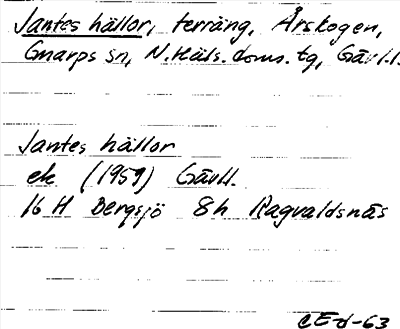 Jantes hällor, terräng, Årskogen,
Gnarps sn, N. Häls. doms. tg, Gävl.l.
Jantes hällor
ek (1959) Gävll.
16 H Bergsjö 8h Ragvaldsnäs
CEd-63